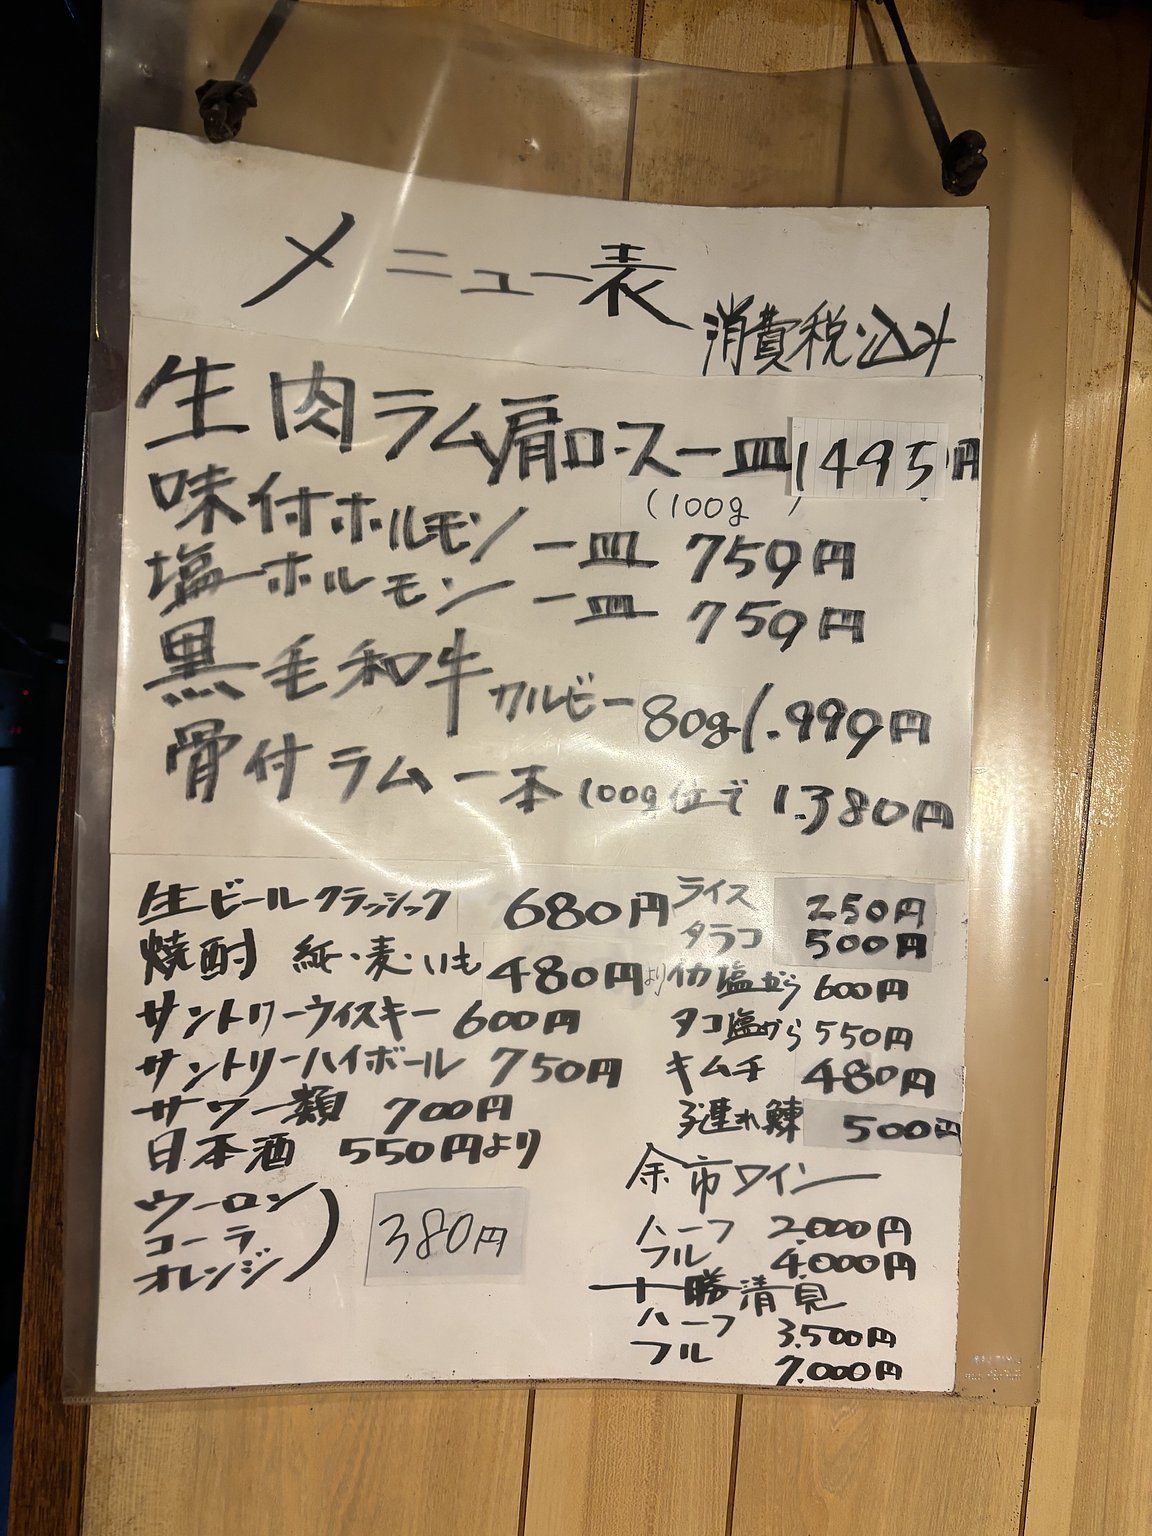 メニュー表
消費税込み
生肉ラム肩ロース一皿 1495円
(100g)
味付ホルモン 一皿 759円
塩ホルモン 一皿 759円
黒毛和牛カルビー80g 1.990円
骨付ラム一本 100g位で 1.380円
生ビールクラッシック 680円
焼酎 紙・麦・いも 480円より
サントリーウイスキー 600円
サントリーハイボール 750円
サワー類 700円
日本酒 550円より
ウーロン
コーラ
オレンジ
) 380円
ライス 250円
タラコ 500円
イカ塩から 600円
タコ塩から 550円
キムチ 480円
鰊 500円
余市ワイン
ハーフ 2.000円
フル 4.000円
十勝清見
ハーフ 3.500円
フル 7.000円